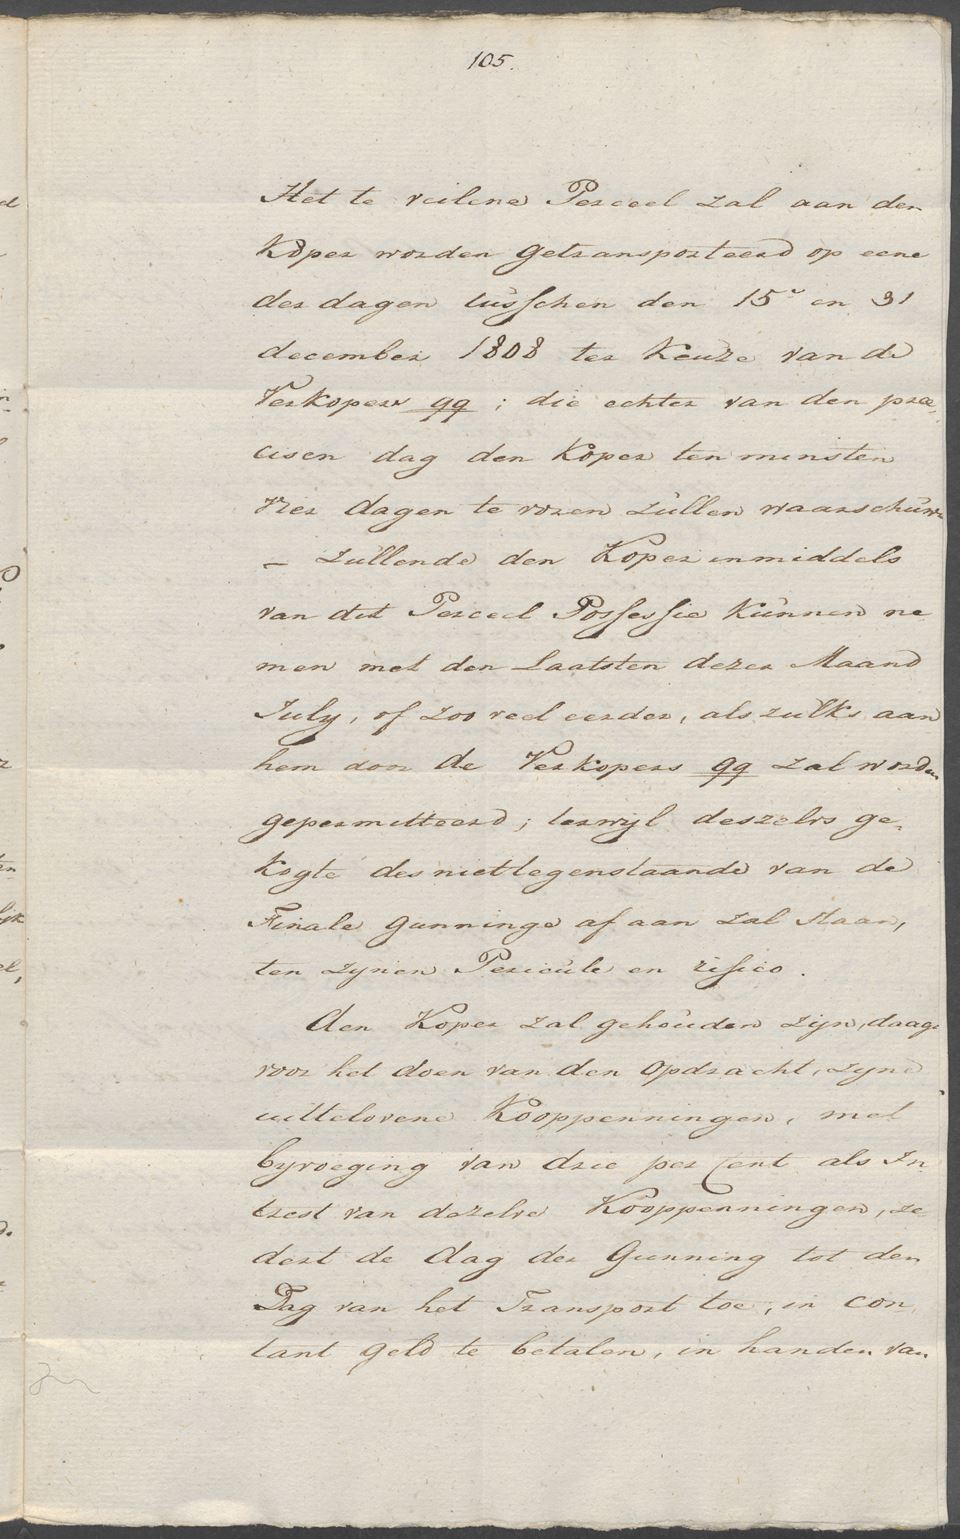 105.
Het te veilene Perceel zal aan den
Koper worden getransporteerd op eene
der dagen tusschen den 15e en 31
december 1808 ter Keuze van de
Verkopers qq; die echter van den prae-
cisen dag den Koper ten minsten
vier dagen te voren zullen waarschuwn
- zullende den Koper inmiddels
van dit Perceel Possessie Kunnen ne
men met den Laatsten dezer Maand
July, of zoo veel eerder, als zulks aan
hem door de Verkopers qq zal worden
gepermitteerd; terwyl deszelvs ge-
kogte des niettegenstaande van de
Finale Gunninge af aan zal staan,
ten zynen Pericule en risico.
Den Koper zal gehouden zijn, daags
voor het doen van den Opdracht, zyne
uittelovene Kooppenningen, met
byvoeging van drie per Cent als In
trest van dezelve Kooppenningen, ze
dert de dag der Gunning tot den
Dag van het Transport toe, in con
tant geld te betalen, in handen van